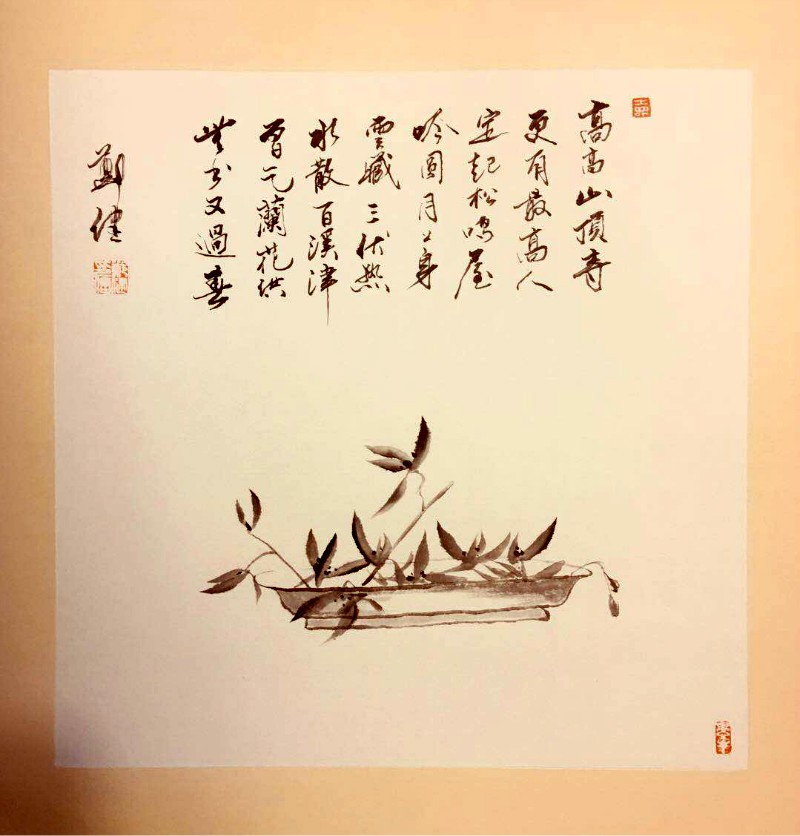 高高山頂寺
更有最高人
定起松鳴屋
吟圓月上身
雲藏三伏熱
水散百溪津
曾乞蘭花供
無書又過春
鄭健